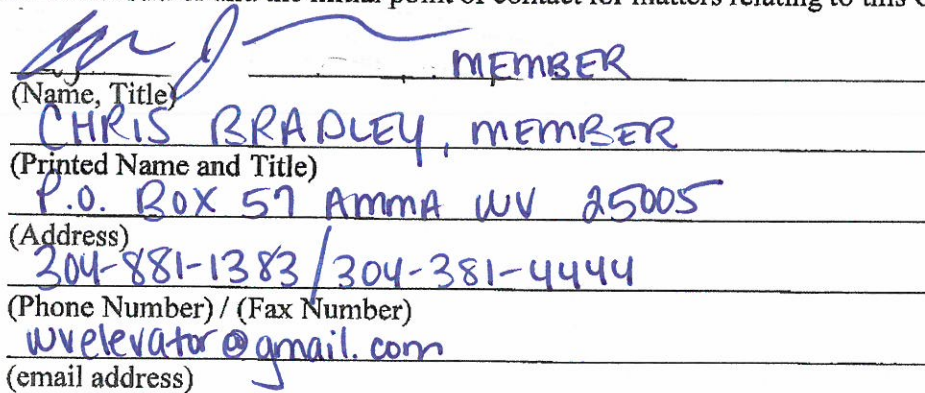 and the initial point of contact for matters relating to this
MEMBER
(Name, Title)
CHRIS BRADLEY, MEMBER
(Printed Name and Title)
P.O. BOX 57 AMMA WV 25005
(Address)
304-881-1383/304-381-4444
(Phone Number) / (Fax Number)
wvelevator@gmail.com
(email address)